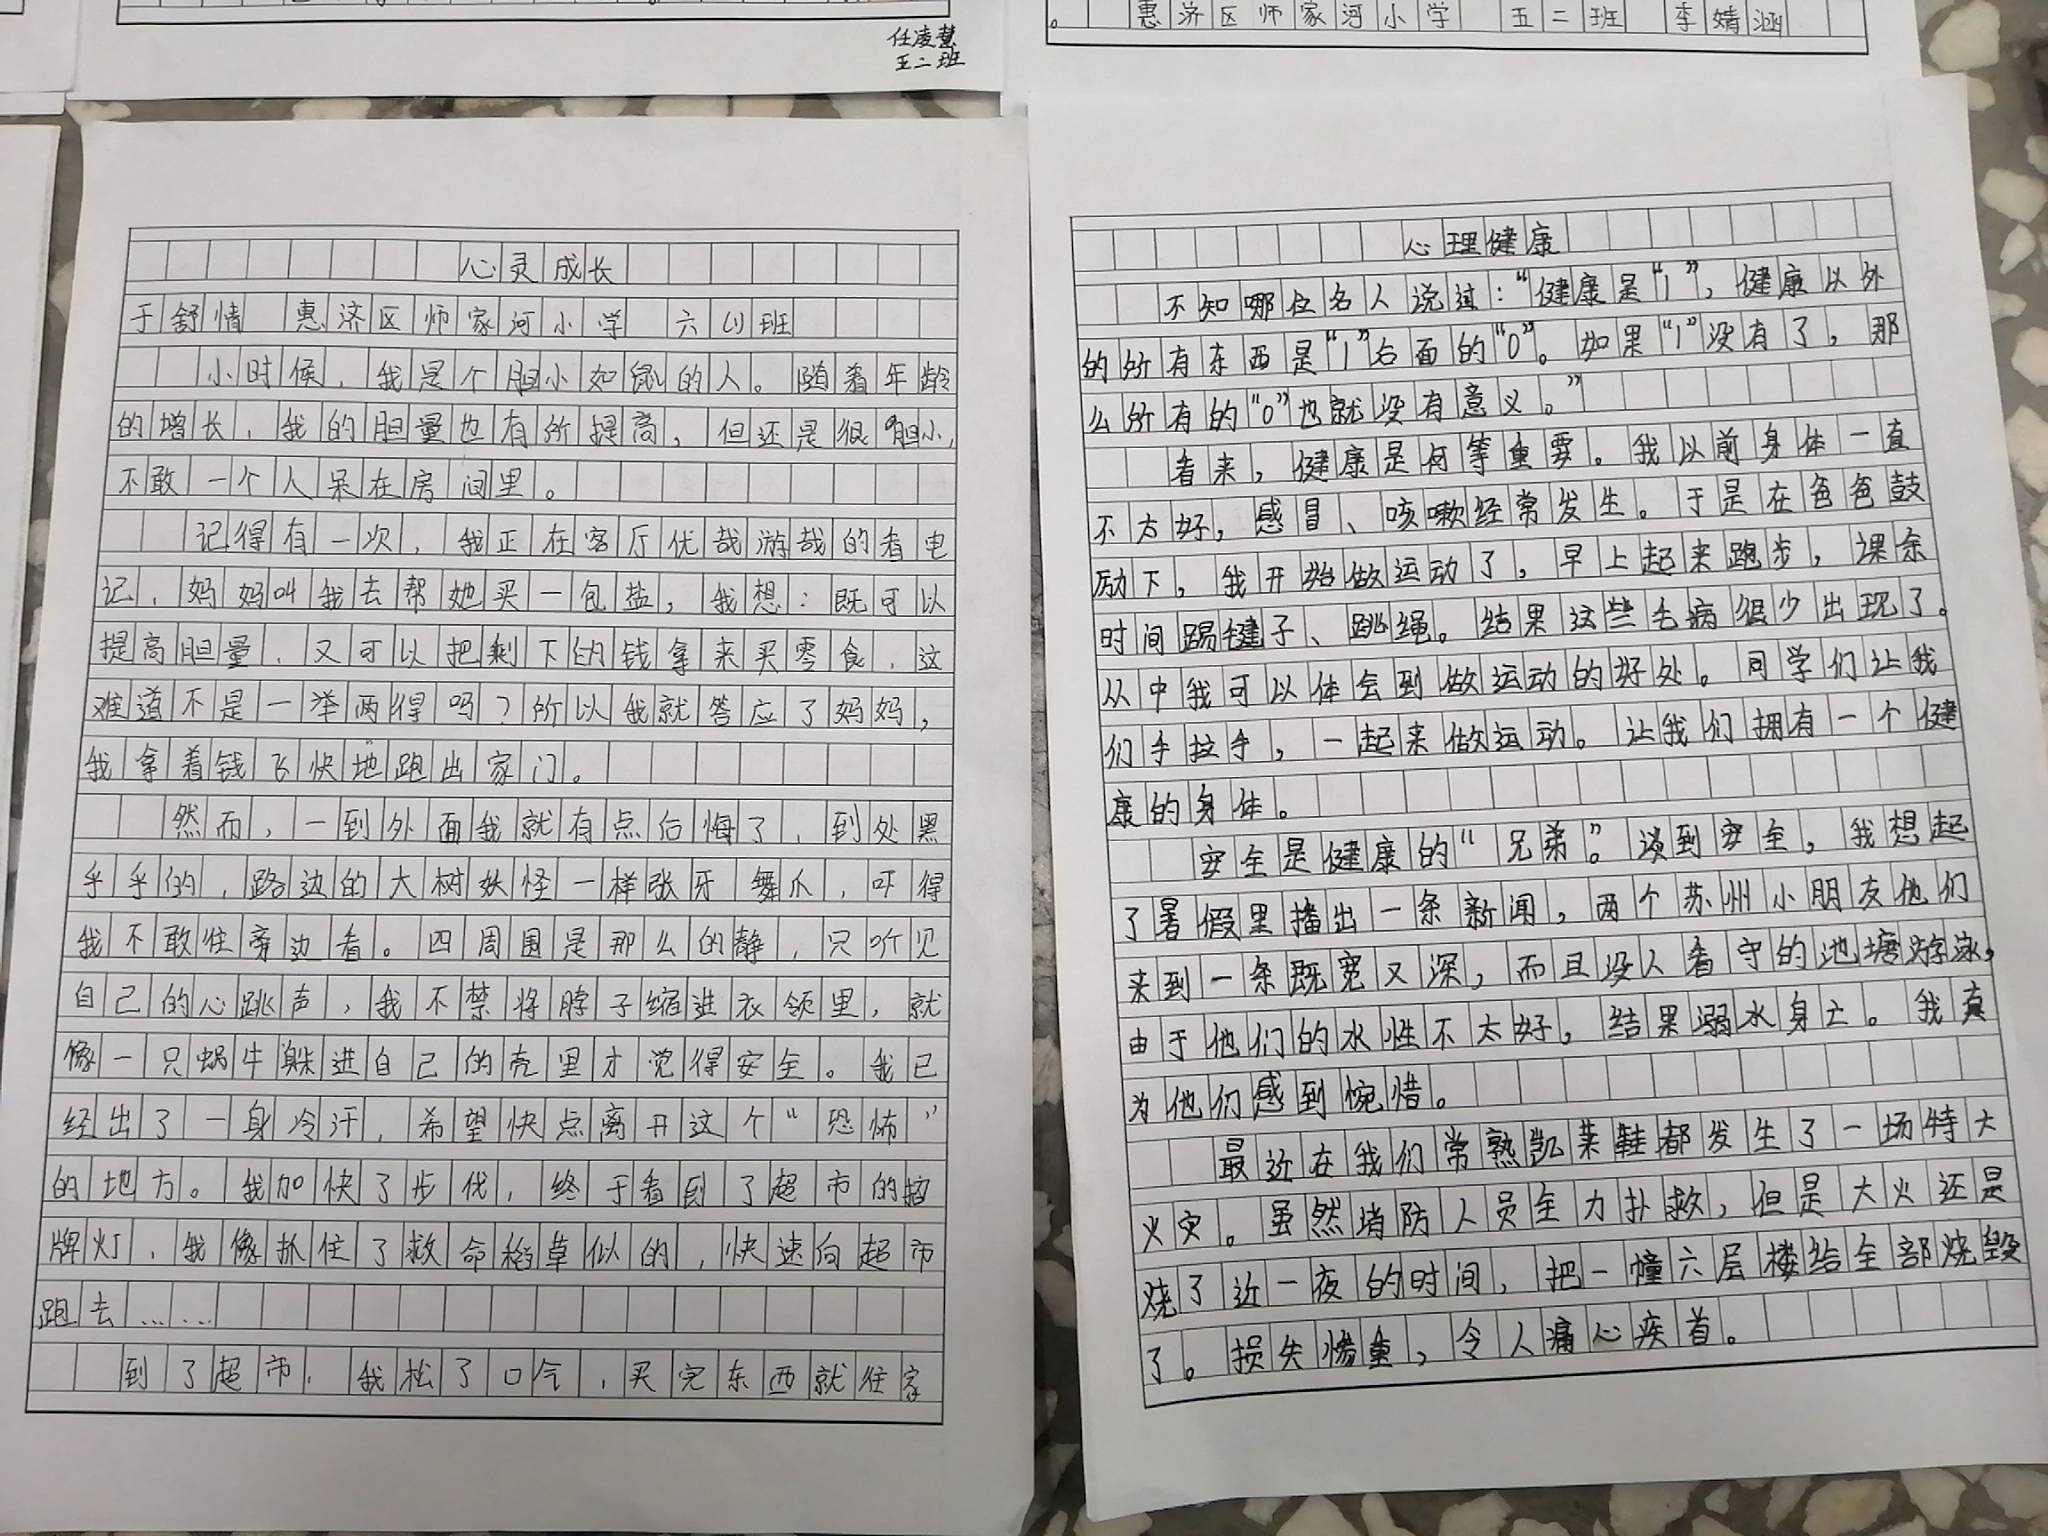 任凌慧
五二班
惠济区师家河小学 五二班 李婧涵
心灵成长
于舒情 惠济区师家河小学 六(1)班
小时候，我是个胆小如鼠的人。随着年龄
的增长，我的胆量也有所提高，但还是很胆小，
不敢一个人呆在房间里。
记得有一次，我正在客厅优哉游哉的看电
记，妈妈叫我去帮她买一包盐，我想：既可以
提高胆量，又可以把剩下的钱拿来买零食，这
难道不是一举两得吗？所以我就答应了妈妈，
我拿着钱飞快地跑出家门。
然而，一到外面我就有点后悔了，到处黑
乎乎的，路边的大树妖怪一样张牙舞爪，吓得
我不敢往旁边看。四周围是那么的静，只听见
自己的心跳声，我不禁将脖子缩进衣领里，就
像一只蜗牛躲进自己的壳里才觉得安全。我已
经出了一身冷汗，希望快点离开这个“恐怖”
的地方。我加快了步伐，终于看到了超市的招
牌灯，我像抓住了救命稻草似的，快速向超市
跑去……
到了超市，我松了口气，买完东西就往家
心理健康
不知哪位名人说过：“健康是“1”，健康以外
的所有东西是“1”右面的“0”。如果“1”没有了，那
么所有的“0”也就没有意义。”
看来，健康是何等重要。我以前身体一直
不太好，感冒、咳嗽经常发生。于是在爸爸鼓
励下，我开始做运动了，早上起来跑步，课余
时间踢毽子、跳绳。结果这些毛病很少出现了。
从中我可以体会到做运动的好处。同学们让我
们手拉手，一起来做运动。让我们拥有一个健
康的身体。
安全是健康的“兄弟”。谈到安全，我想起
了暑假里播出一条新闻，两个苏州小朋友他们
来到一条既宽又深，而且没人看守的池塘游泳，
由于他们的水性不太好，结果溺水身亡。我真
为他们感到惋惜。
最近在我们常熟凯莱鞋都发生了一场特大
火灾。虽然消防人员全力扑救，但是大火还是
烧了近一夜的时间，把一幢六层楼给全部烧毁
了。损失惨重，令人痛心疾首。